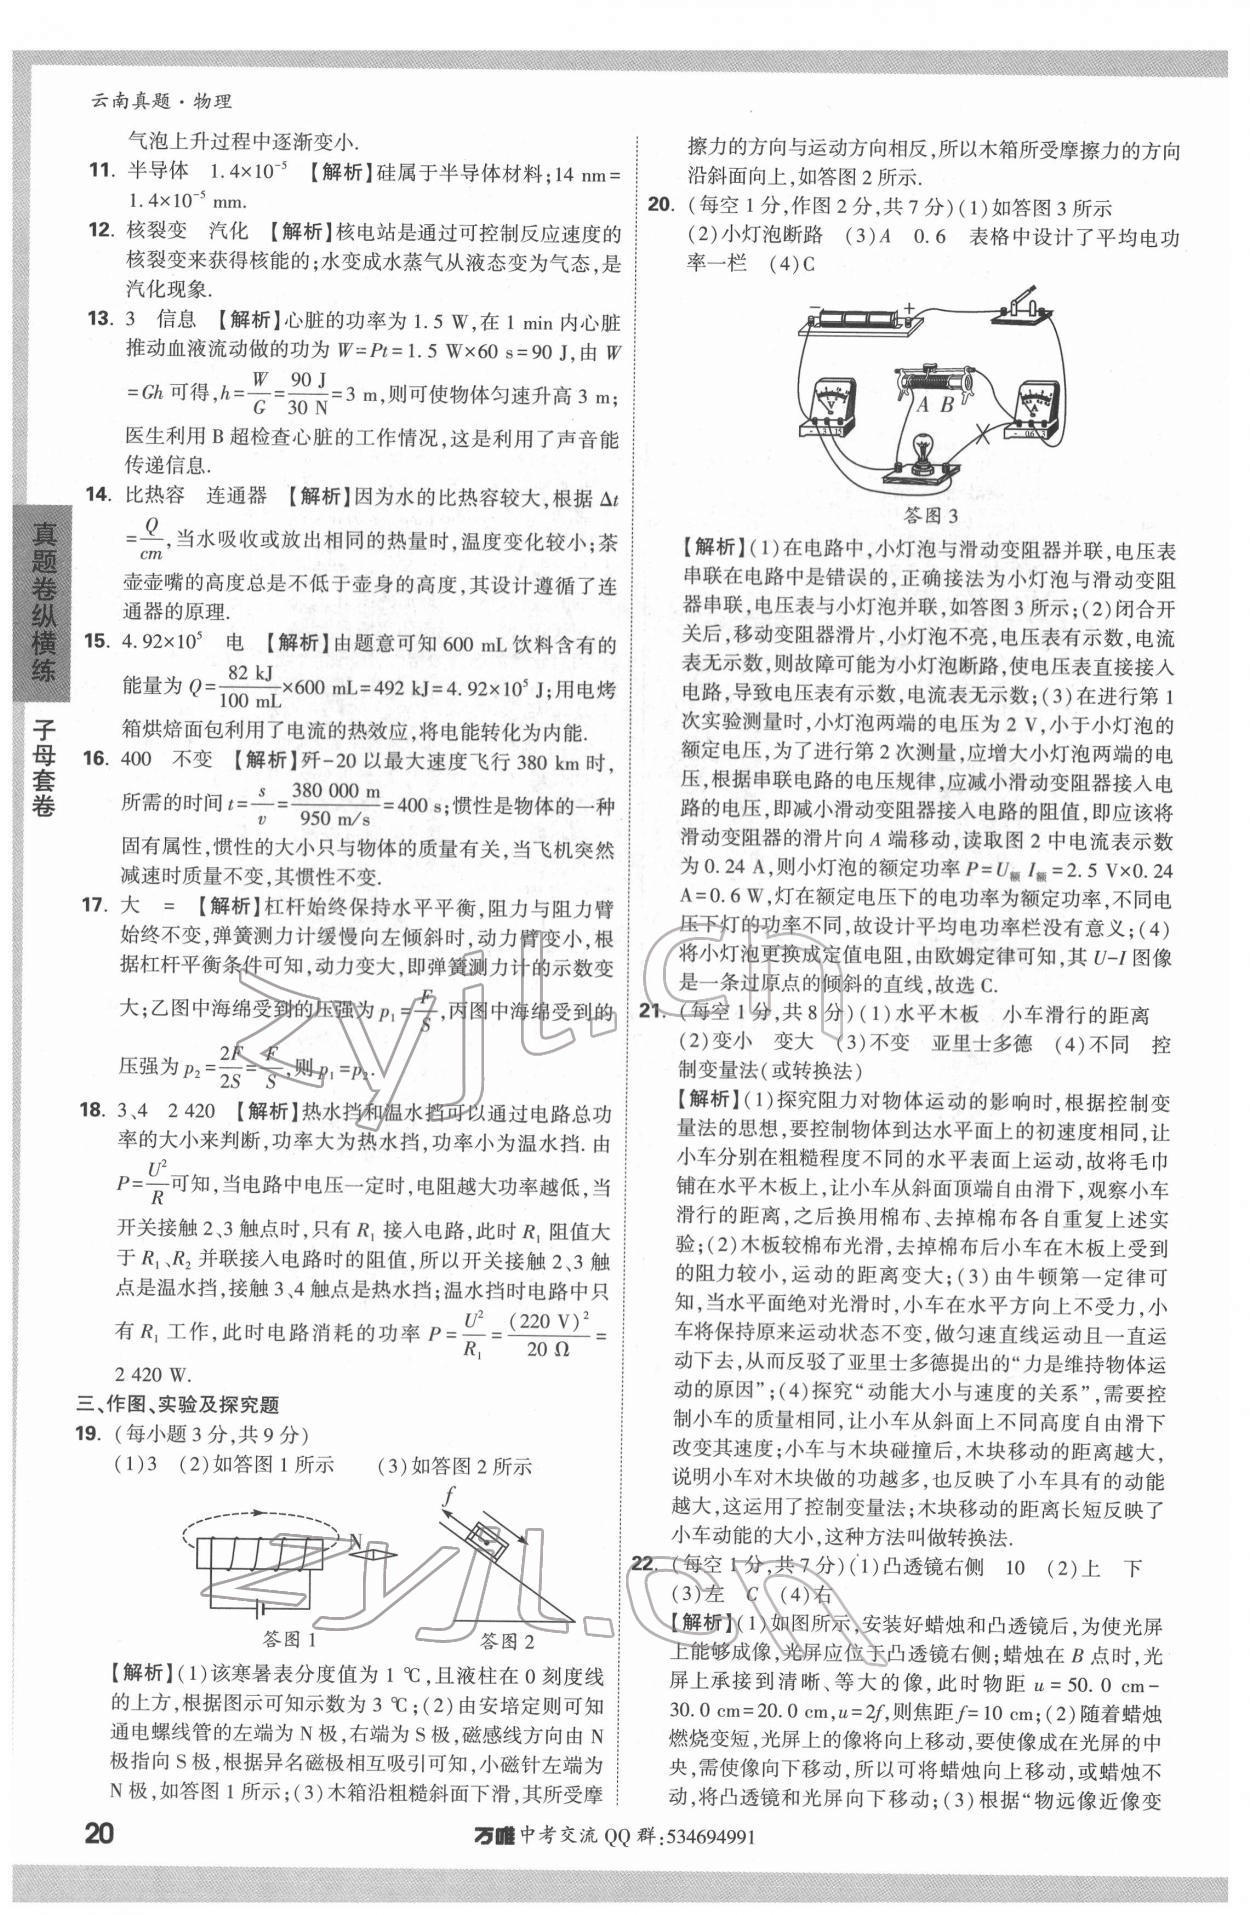 云南真题·物理
气泡上升过程中逐渐变小.
11. 半导体　1.4×10⁻⁵　【解析】硅属于半导体材料;14 nm=
1.4×10⁻⁵ mm.
12. 核裂变　汽化　【解析】核电站是通过可控制反应速度的
核裂变来获得核能的;水变成水蒸气从液态变为气态,是
汽化现象.
13. 3　信息　【解析】心脏的功率为 1.5 W,在 1 min 内心脏
推动血液流动做的功为 W=Pt=1.5 W×60 s=90 J,由 W
=Gh 可得,h=W/G=90 J/30 N=3 m,则可使物体匀速升高 3 m;
医生利用 B 超检查心脏的工作情况,这是利用了声音能
传递信息.
14. 比热容　连通器　【解析】因为水的比热容较大,根据 Δt
=Q/cm,当水吸收或放出相同的热量时,温度变化较小;茶
壶壶嘴的高度总是不低于壶身的高度,其设计遵循了连
通器的原理.
15. 4.92×10⁵　电　【解析】由题意可知 600 mL 饮料含有的
能量为 Q=82 kJ/100 mL×600 mL=492 kJ=4.92×10⁵ J;用电烤
箱烘焙面包利用了电流的热效应,将电能转化为内能.
16. 400　不变　【解析】歼-20 以最大速度飞行 380 km 时,
所需的时间 t=s/v=380 000 m/950 m/s=400 s;惯性是物体的一种
固有属性,惯性的大小只与物体的质量有关,当飞机突然
减速时质量不变,其惯性不变.
17. 大　=　【解析】杠杆始终保持水平平衡,阻力与阻力臂
始终不变,弹簧测力计缓慢向左倾斜时,动力臂变小,根
据杠杆平衡条件可知,动力变大,即弹簧测力计的示数变
大;乙图中海绵受到的压强为 p₁=F/S,丙图中海绵受到的
压强为 p₂=2F/2S=F/S,则 p₁=p₂.
18. 3、4　2 420　【解析】热水挡和温水挡可以通过电路总功
率的大小来判断,功率大为热水挡,功率小为温水挡. 由
P=U²/R可知,当电路中电压一定时,电阻越大功率越低,当
开关接触 2、3 触点时,只有 R₁ 接入电路,此时 R₁ 阻值大
于 R₁、R₂ 并联接入电路时的阻值,所以开关接触 2、3 触
点是温水挡,接触 3、4 触点是热水挡;温水挡时电路中只
有 R₁ 工作,此时电路消耗的功率 P=U²/R₁=(220 V)²/20 Ω=
2 420 W.
三、作图、实验及探究题
19. (每小题 3 分,共 9 分)
(1)3　(2)如答图 1 所示　(3)如答图 2 所示
N
f
答图 1
答图 2
【解析】(1)该寒暑表分度值为 1 ℃,且液柱在 0 刻度线
的上方,根据图示可知示数为 3 ℃;(2)由安培定则可知
通电螺线管的左端为 N 极,右端为 S 极,磁感线方向由 N
极指向 S 极,根据异名磁极相互吸引可知,小磁针左端为
N 极,如答图 1 所示;(3)木箱沿粗糙斜面下滑,其所受摩
擦力的方向与运动方向相反,所以木箱所受摩擦力的方向
沿斜面向上,如答图 2 所示.
20. (每空 1 分,作图 2 分,共 7 分)(1)如答图 3 所示
(2)小灯泡断路　(3)A　0.6　表格中设计了平均电功
率一栏　(4)C
− +
A B
V
A
- 3 15
- 0.6 3
答图 3
【解析】(1)在电路中,小灯泡与滑动变阻器并联,电压表
串联在电路中是错误的,正确接法为小灯泡与滑动变阻
器串联,电压表与小灯泡并联,如答图 3 所示;(2)闭合开
关后,移动变阻器滑片,小灯泡不亮,电压表有示数,电流
表无示数,则故障可能为小灯泡断路,使电压表直接接入
电路,导致电压表有示数,电流表无示数;(3)在进行第 1
次实验测量时,小灯泡两端的电压为 2 V,小于小灯泡的
额定电压,为了进行第 2 次测量,应增大小灯泡两端的电
压,根据串联电路的电压规律,应减小滑动变阻器接入电
路的电压,即减小滑动变阻器接入电路的阻值,即应该将
滑动变阻器的滑片向 A 端移动,读取图 2 中电流表示数
为 0.24 A,则小灯泡的额定功率 P=U额 I额=2.5 V×0.24
A=0.6 W,灯在额定电压下的电功率为额定功率,不同电
压下灯的功率不同,故设计平均电功率栏没有意义;(4)
将小灯泡更换成定值电阻,由欧姆定律可知,其 U-I 图像
是一条过原点的倾斜的直线,故选 C.
21. (每空 1 分,共 8 分)(1)水平木板　小车滑行的距离
(2)变小　变大　(3)不变　亚里士多德　(4)不同　控
制变量法(或转换法)
【解析】(1)探究阻力对物体运动的影响时,根据控制变
量法的思想,要控制物体到达水平面上的初速度相同,让
小车分别在粗糙程度不同的水平表面上运动,故将毛巾
铺在水平木板上,让小车从斜面顶端自由滑下,观察小车
滑行的距离,之后换用棉布、去掉棉布各自重复上述实
验;(2)木板较棉布光滑,去掉棉布后小车在木板上受到
的阻力较小,运动的距离变大;(3)由牛顿第一定律可
知,当水平面绝对光滑时,小车在水平方向上不受力,小
车将保持原来运动状态不变,做匀速直线运动且一直运
动下去,从而反驳了亚里士多德提出的“力是维持物体运
动的原因”;(4)探究“动能大小与速度的关系”,需要控
制小车的质量相同,让小车从斜面上不同高度自由滑下
改变其速度;小车与木块碰撞后,木块移动的距离越大,
说明小车对木块做的功越多,也反映了小车具有的动能
越大,这运用了控制变量法;木块移动的距离长短反映了
小车动能的大小,这种方法叫做转换法.
22. (每空 1 分,共 7 分)(1)凸透镜右侧　10　(2)上　下
(3)左　C　(4)右
【解析】(1)如图所示,安装好蜡烛和凸透镜后,为使光屏
上能够成像,光屏应位于凸透镜右侧;蜡烛在 B 点时,光
屏上承接到清晰、等大的像,此时物距 u=50.0 cm-
30.0 cm=20.0 cm,u=2f,则焦距 f=10 cm;(2)随着蜡烛
燃烧变短,光屏上的像将向上移动,要使像成在光屏的中
央,需使像向下移动,所以可将蜡烛向上移动,或蜡烛不
动,将凸透镜和光屏向下移动;(3)根据“物远像近像变
真题卷纵横练
子母套卷
20
万唯中考交流 QQ 群:534694991
zyjl.cn
zyjl.cn